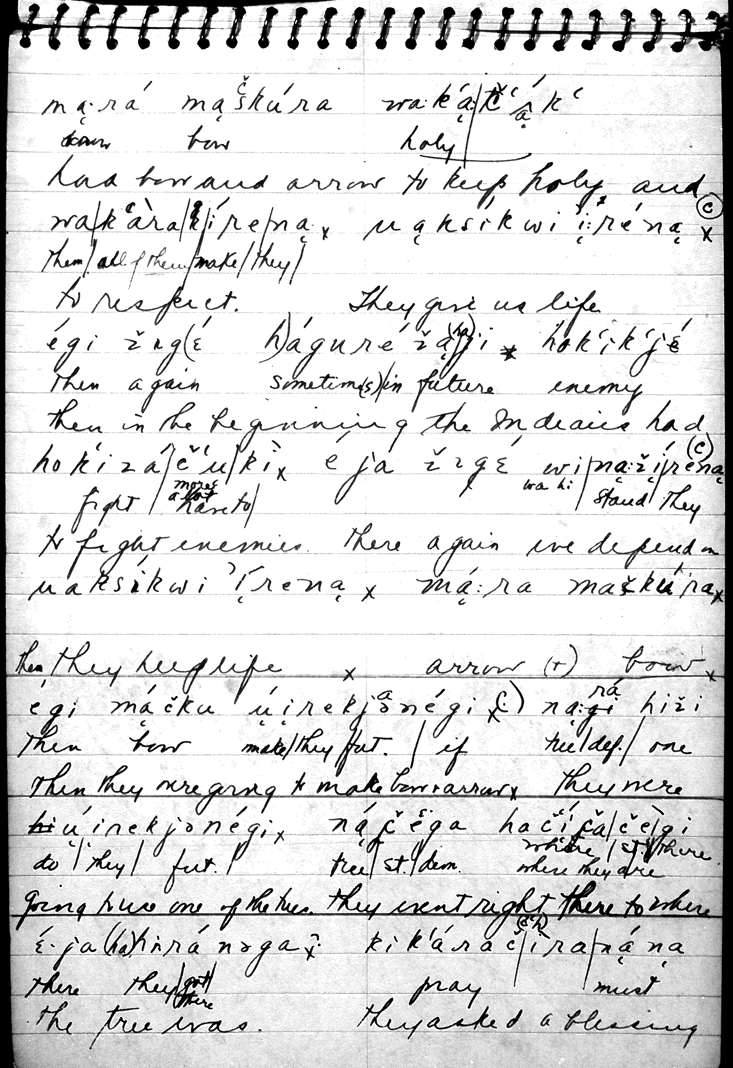 mą·rá mąškúra wa·k'ą́k'
bow holy
had bow and arrow to keep holy and
wa/k'àra/kí/re/ną x uąksíkwi į́:réną x
them/all of them/make/they/
to respect. They give us life
égi žıg(é h)águréžą(hą)ji x hok'ik'jé
then again sometim(s)/in future enemy
then in the beginning the Indeians had
hok'izá/č'u/kì x éja žıgé wi/ną:žį́/reną (c)
fight / have to/ stand they
to fight enemies. there again we depend on
uaksíkwi 'į́reną x mą́:ra maškúra x
then they keep life x arrow (+) bow x
égi mą́čku ųirekjanégi x (c) ną:gírá hiži
then bow make/they fut. / if tree/def./ one
then they were going to make bow & arrow x they were
ųirekjanégi x ną́čéga hačíča/čè/gi
do / they / fut. / tree/st./dem. where they are
going to use one of the trees. they went right there to where
é·ja (ha)hirá nąga x kik'árač/ira/ną́ną
there they/got there pray must
the tree was. they asked a blessing